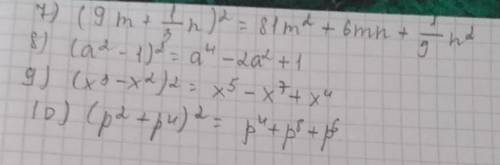 7) (9m + 1/3 n)² = 81m² + 6mn + 1/9 n²
8) (a² - 1)² = a⁴ - 2a² + 1
9) (x³ - x²)² = x⁵ - x⁷ + x⁴
10) (p² + p⁴)² = p⁴ + p⁸ + p⁶